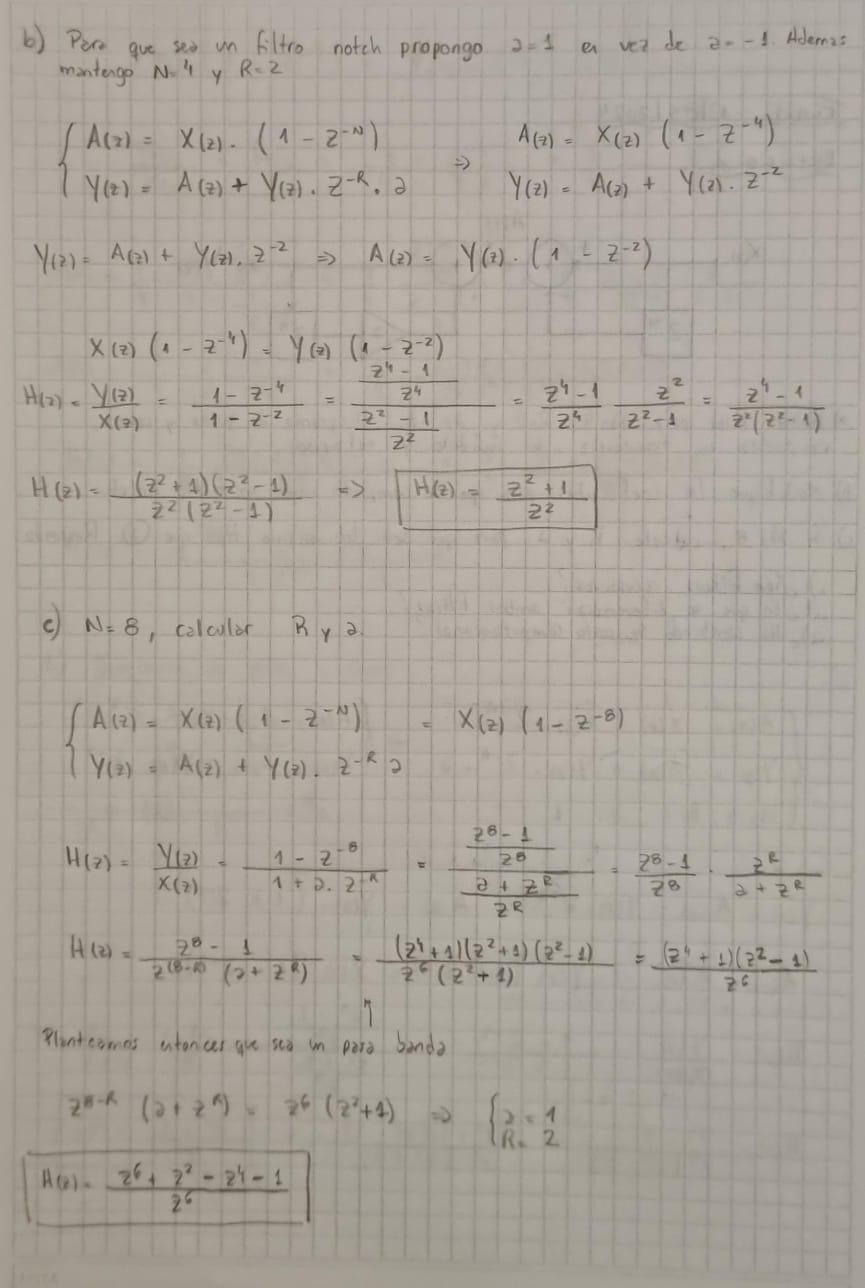 b) Para que sea un filtro notch propongo a=1 en vez de a=-1. Ademas
mantengo N=4 y R=2
{ A(z) = X(z). (1 - z^-N) => A(z) = X(z) (1 - z^-4)
{ Y(z) = A(z) + Y(z). z^-R. a Y(z) = A(z) + Y(z). z^-2
Y(z) = A(z) + Y(z). z^-2 => A(z) = Y(z). (1 - z^-2)
X(z) (1 - z^-4) = Y(z) (1 - z^-2)
H(z) = Y(z)/X(z) = (1 - z^-4)/(1 - z^-2) = ((z^4 - 1)/z^4)/((z^2 - 1)/z^2) = (z^4 - 1)/z^4 z^2/(z^2 - 1) = (z^4 - 1)/(z^2(z^2 - 1))
H(z) = (z^2 + 1)(z^2 - 1)/(z^2(z^2 - 1)) => H(z) = (z^2 + 1)/z^2
c) N=8, calcular R y a.
{ A(z) = X(z) (1 - z^-N) = X(z) (1 - z^-8)
{ Y(z) = A(z) + Y(z). z^-R a
H(z) = Y(z)/X(z) = (1 - z^-8)/(1 + a. z^-R) = ((z^8 - 1)/z^8)/((a + z^R)/z^R) = (z^8 - 1)/z^8 . z^R/(a + z^R)
H(z) = (z^8 - 1)/(z^(8-R) (a + z^R)) = (z^4 + 1)(z^2 + 1)(z^2 - 1)/(z^6 (z^2 + 1)) = (z^4 + 1)(z^2 - 1)/z^6
↑
Planteamos entonces que sea un pasa banda
z^8-R (a + z^R) = z^6 (z^2 + 1) => { a = 1
R = 2
H(z) = (z^6 + z^2 - z^4 - 1)/z^6